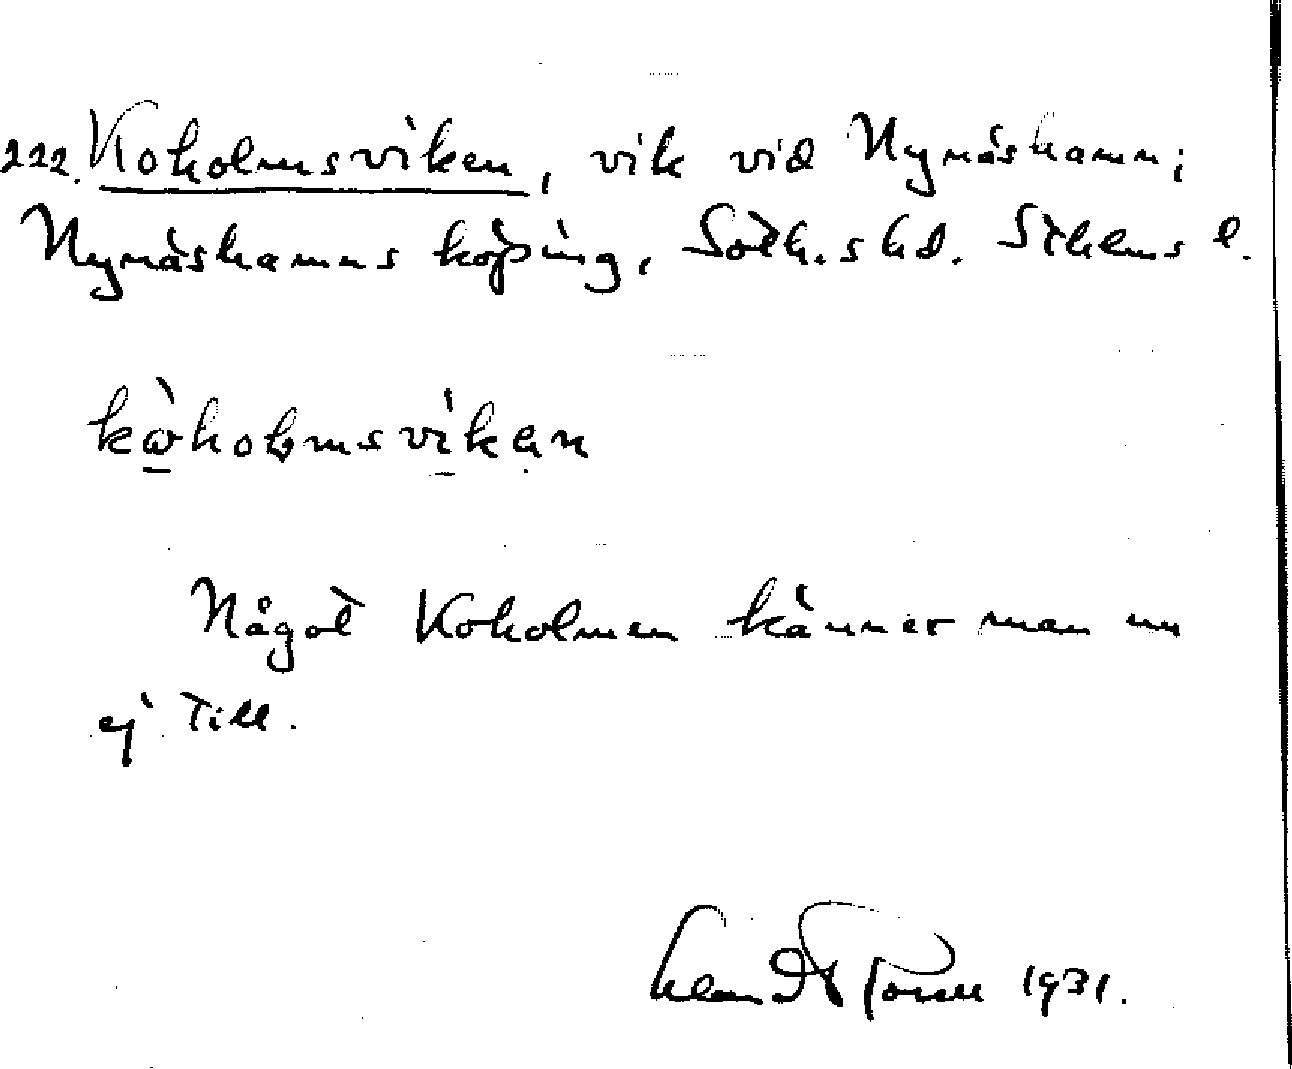 222. Koholmsviken, vik vid Nynäshamn;
Nynäshamns köping, Soth.s hd. Sthlms l.
kòholmsvikən
Något Koholmen känner man nu
ej till.
1931.